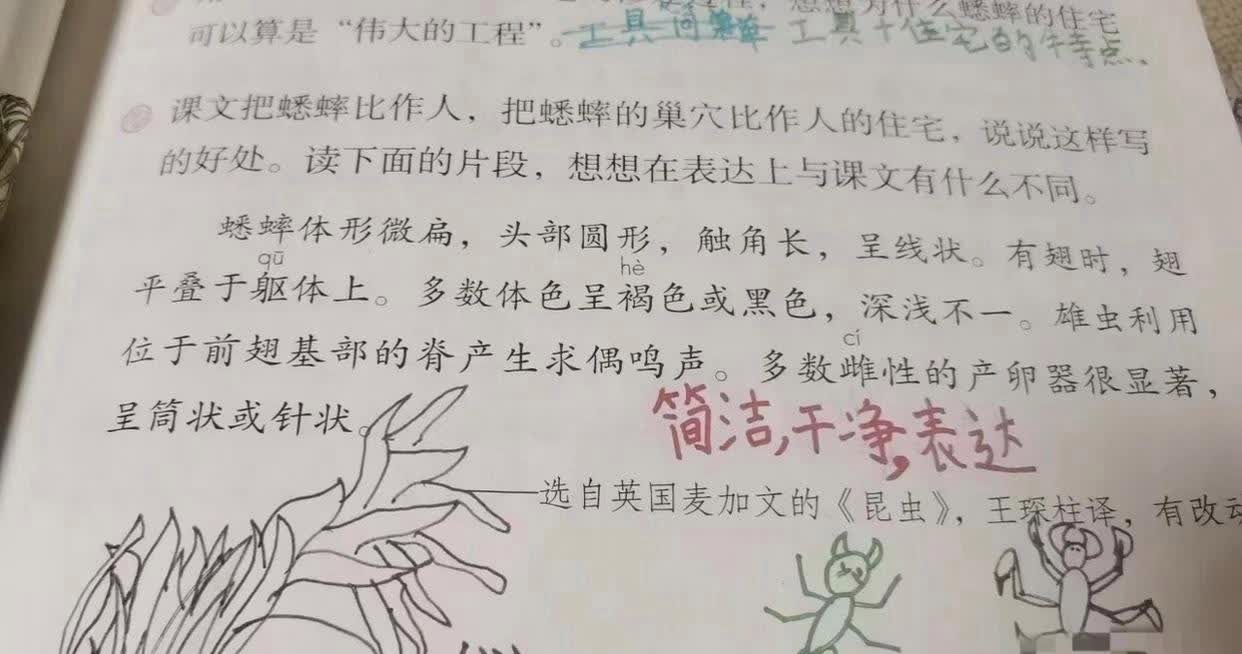 想想为什么蟋蟀的住宅
可以算是“伟大的工程”。工具 工具+住宅的特点、
课文把蟋蟀比作人，把蟋蟀的巢穴比作人的住宅，说说这样写
的好处。读下面的片段，想想在表达上与课文有什么不同。
蟋蟀体形微扁，头部圆形，触角长，呈线状。有翅时，翅
qū hè
平叠于躯体上。多数体色呈褐色或黑色，深浅不一。雄虫利用
cí
位于前翅基部的脊产生求偶鸣声。多数雌性的产卵器很显著，
呈筒状或针状。
简洁,干净,表达
——选自英国麦加文的《昆虫》，王琛柱译，有改动